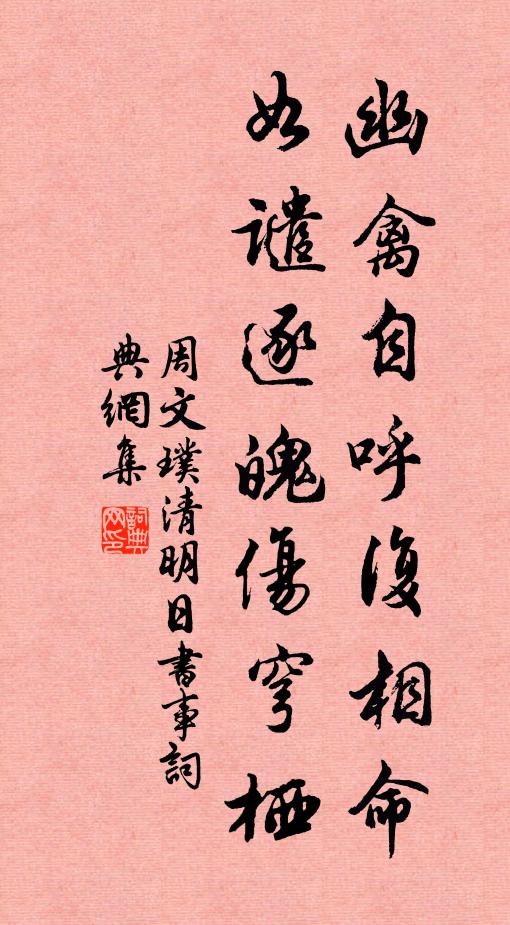 幽禽自呼復相命
如譴逐魄傷穹栖
周文璞清明日書事詞
典網集
詞典
网印